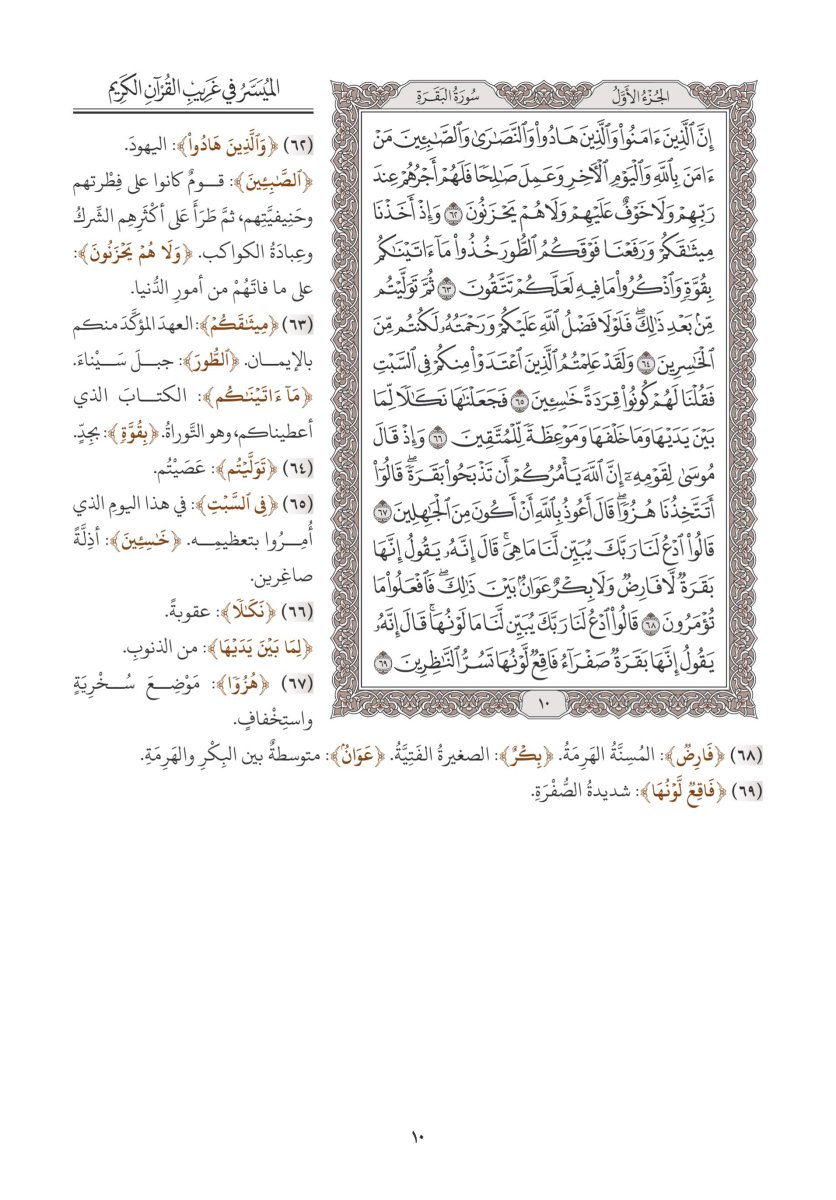 الجُزْءُ الأَوَّلُ
سُورَةُ البَقَرَةِ
إِنَّ ٱلَّذِينَ ءَامَنُواْ وَٱلَّذِينَ هَادُواْ وَٱلنَّصَٰرَىٰ وَٱلصَّٰبِـِٔينَ مَنْ
ءَامَنَ بِٱللَّهِ وَٱلْيَوْمِ ٱلْأٓخِرِ وَعَمِلَ صَٰلِحًا فَلَهُمْ أَجْرُهُمْ عِندَ
رَبِّهِمْ وَلَا خَوْفٌ عَلَيْهِمْ وَلَا هُمْ يَحْزَنُونَ ٦٢ وَإِذْ أَخَذْنَا
مِيثَٰقَكُمْ وَرَفَعْنَا فَوْقَكُمُ ٱلطُّورَ خُذُواْ مَآ ءَاتَيْنَٰكُم
بِقُوَّةٍ وَٱذْكُرُواْ مَا فِيهِ لَعَلَّكُمْ تَتَّقُونَ ٦٣ ثُمَّ تَوَلَّيْتُم
مِّنۢ بَعْدِ ذَٰلِكَۖ فَلَوْلَا فَضْلُ ٱللَّهِ عَلَيْكُمْ وَرَحْمَتُهُۥ لَكُنتُم مِّنَ
ٱلْخَٰسِرِينَ ٦٤ وَلَقَدْ عَلِمْتُمُ ٱلَّذِينَ ٱعْتَدَوْاْ مِنكُمْ فِي ٱلسَّبْتِ
فَقُلْنَا لَهُمْ كُونُواْ قِرَدَةً خَٰسِـِٔينَ ٦٥ فَجَعَلْنَٰهَا نَكَٰلًا لِّمَا
بَيْنَ يَدَيْهَا وَمَا خَلْفَهَا وَمَوْعِظَةً لِّلْمُتَّقِينَ ٦٦ وَإِذْ قَالَ
مُوسَىٰ لِقَوْمِهِۦٓ إِنَّ ٱللَّهَ يَأْمُرُكُمْ أَن تَذْبَحُواْ بَقَرَةًۖ قَالُوٓاْ
أَتَتَّخِذُنَا هُزُوًاۖ قَالَ أَعُوذُ بِٱللَّهِ أَنْ أَكُونَ مِنَ ٱلْجَٰهِلِينَ ٦٧
قَالُواْ ٱدْعُ لَنَا رَبَّكَ يُبَيِّن لَّنَا مَا هِيَۚ قَالَ إِنَّهُۥ يَقُولُ إِنَّهَا
بَقَرَةٌ لَّا فَارِضٌ وَلَا بِكْرٌ عَوَانٌۢ بَيْنَ ذَٰلِكَۖ فَٱفْعَلُواْ مَا
تُؤْمَرُونَ ٦٨ قَالُواْ ٱدْعُ لَنَا رَبَّكَ يُبَيِّن لَّنَا مَا لَوْنُهَاۚ قَالَ إِنَّهُۥ
يَقُولُ إِنَّهَا بَقَرَةٌ صَفْرَآءُ فَاقِعٌ لَّوْنُهَا تَسُرُّ ٱلنَّٰظِرِينَ ٦٩
١٠
المُيَسَّرُ في غَرِيبِ القُرْآنِ الكَرِيم
(٦٢) ﴿وَٱلَّذِينَ هَادُواْ﴾: اليهودَ.
﴿ٱلصَّٰبِـِٔينَ﴾: قومٌ كانوا على فِطْرتهم
وحَنِيفيَّتِهم، ثمَّ طَرَأَ عَلَى أكْثَرِهِم الشِّركُ
وعِبادَةُ الكواكب. ﴿وَلَا هُمْ يَحْزَنُونَ﴾:
على ما فاتَهُمْ من أمورِ الدُّنيا.
(٦٣) ﴿مِيثَٰقَكُمْ﴾: العهدَ المؤكَّدَ منكم
بالإيمان. ﴿ٱلطُّورَ﴾: جبلَ سَيْناءَ.
﴿مَآ ءَاتَيْنَٰكُم﴾: الكتابَ الذي
أعطيناكم، وهو التَّوراةُ. ﴿بِقُوَّةٍ﴾: بجِدٍّ.
(٦٤) ﴿تَوَلَّيْتُم﴾: عَصَيْتُم.
(٦٥) ﴿فِي ٱلسَّبْتِ﴾: في هذا اليومِ الذي
أُمِرُوا بتعظيمِه. ﴿خَٰسِـِٔينَ﴾: أذِلَّةً
صاغرين.
(٦٦) ﴿نَكَٰلًا﴾: عقوبةً.
﴿لِمَا بَيْنَ يَدَيْهَا﴾: من الذنوبِ.
(٦٧) ﴿هُزُوًا﴾: مَوْضِعَ سُخْرِيَةٍ
واستِخْفافٍ.
(٦٨) ﴿فَارِضٌ﴾: المُسِنَّةُ الهَرِمَةُ. ﴿بِكْرٌ﴾: الصغيرةُ الفَتِيَّةُ. ﴿عَوَانٌۢ﴾: متوسطةٌ بين البِكْرِ والهَرِمَةِ.
(٦٩) ﴿فَاقِعٌ لَّوْنُهَا﴾: شديدةُ الصُّفْرَةِ.
١٠